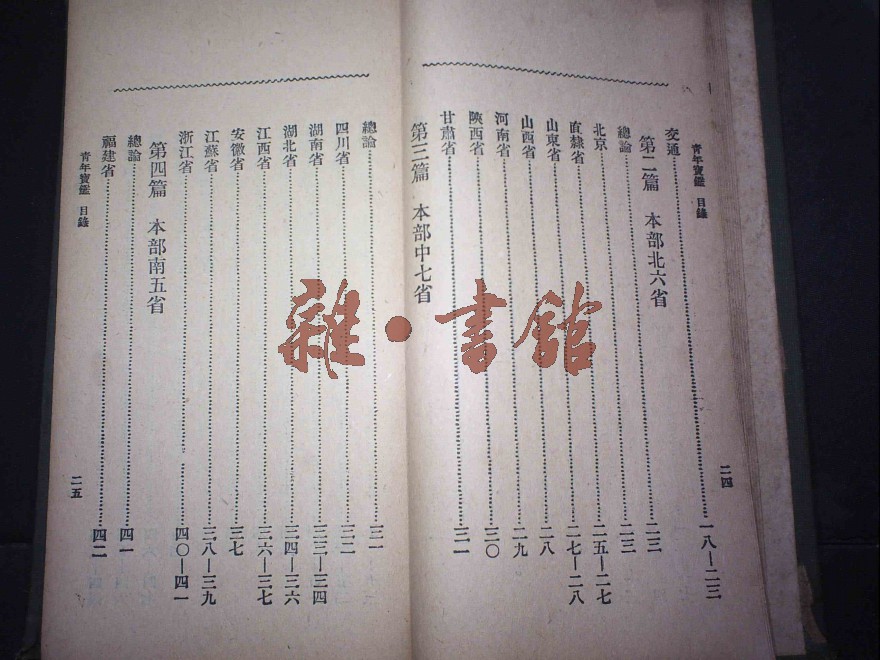 青年寶鑑 目錄
二四
交通……一八—二三
第二篇 本部北六省
總論……二三
北京……二五—二七
直隸省……二七—二八
山東省……二八
山西省……二九
河南省……三〇
陝西省……三一
甘肅省……三一
第三篇 本部中七省
總論……三一
四川省……三二
湖南省……三三—三四
湖北省……三四—三六
江西省……三六—三七
安徽省……三七
江蘇省……三八—三九
浙江省……四〇—四一
第四篇 本部南五省
總論……四一
福建省……四二
青年寶鑑 目錄
二五
雜·書館